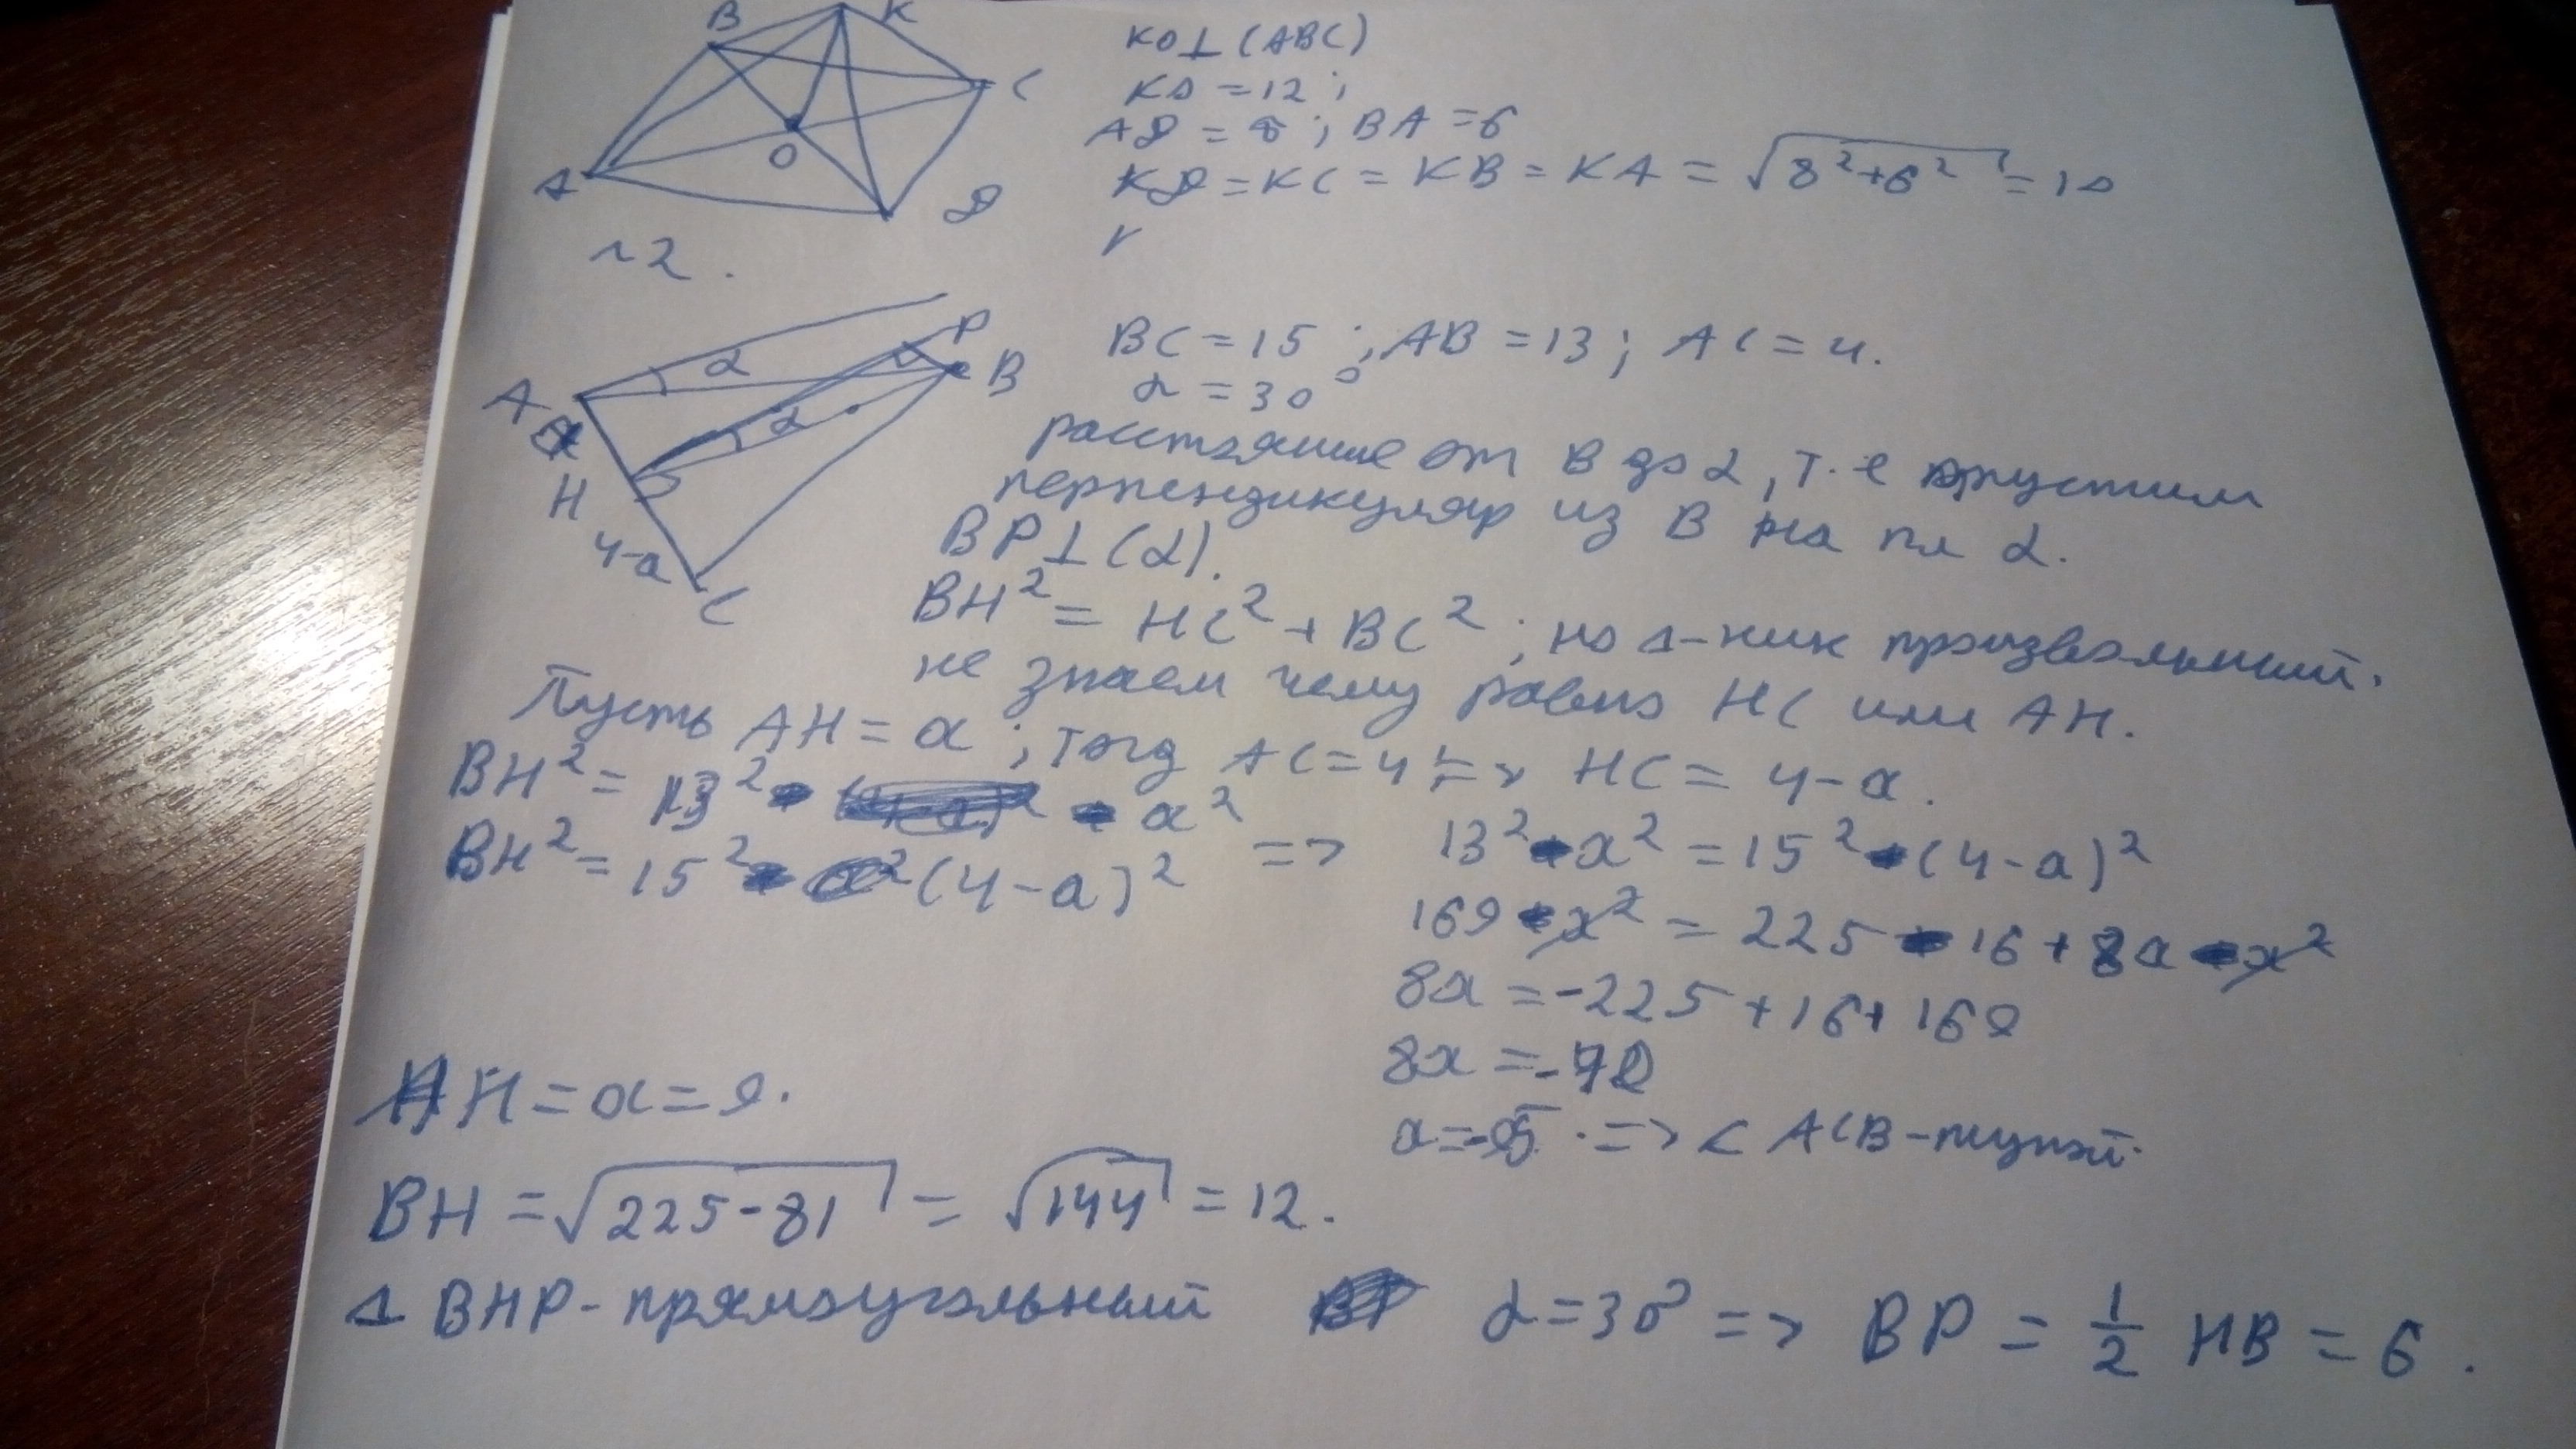 B K C O A D
KO⊥(ABC)
KO = 12;
AD = 8; BA = 6
KD = KC = KB = KA = √(8²+6²) = 10
~2.
A α P B α H 4-a C
BC = 15; AB = 13; AC = 4.
α = 30°
расстояние от B до α, т.е опустим
перпендикуляр из B на пл α.
BP⊥(α).
BH² = HC² + BC²; но Δ-ник произвольный.
не знаем чему равно HC или AH.
Пусть AH = a; тогд AC = 4; => HC = 4-a.
BH² = 13² - a²
BH² = 15² - (4-a)² => 13² - a² = 15² - (4-a)²
169 - a² = 225 - 16 + 8a - a²
8a = -225 + 16 + 169
8a = -
a = - => ∠ACB - тупой.
H = a = 9.
BH = √(225-81) = √144 = 12.
Δ BHP - прямоугольный α = 30° => BP = 1/2 HB = 6.